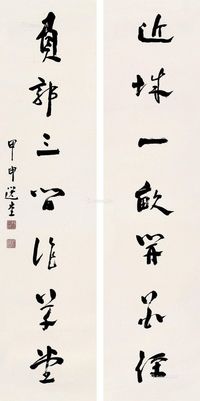 近城一畝開花徑
負郭三間作草堂
甲申選堂